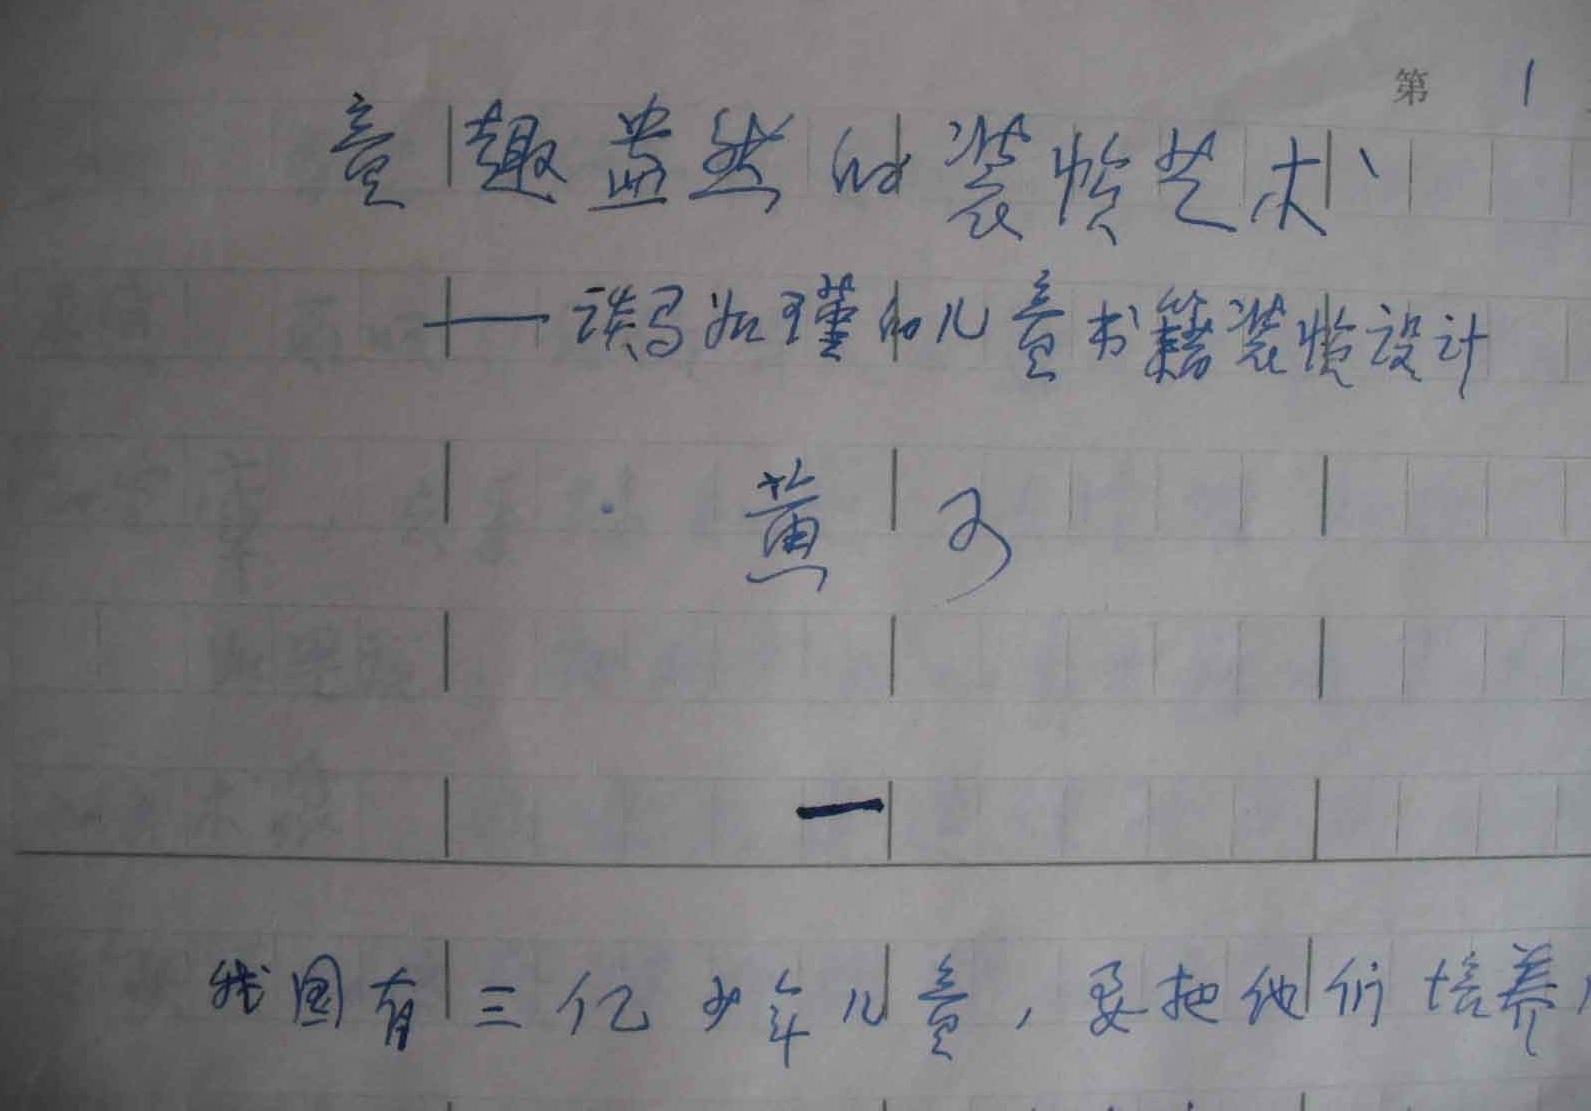 第 1
童趣盎然的装帧艺术
——谈马如瑾的儿童书籍装帧设计
黄可
一
我国有三亿少年儿童，要把他们培养